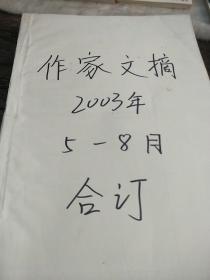 作家文摘
2003年
5-8月
合订